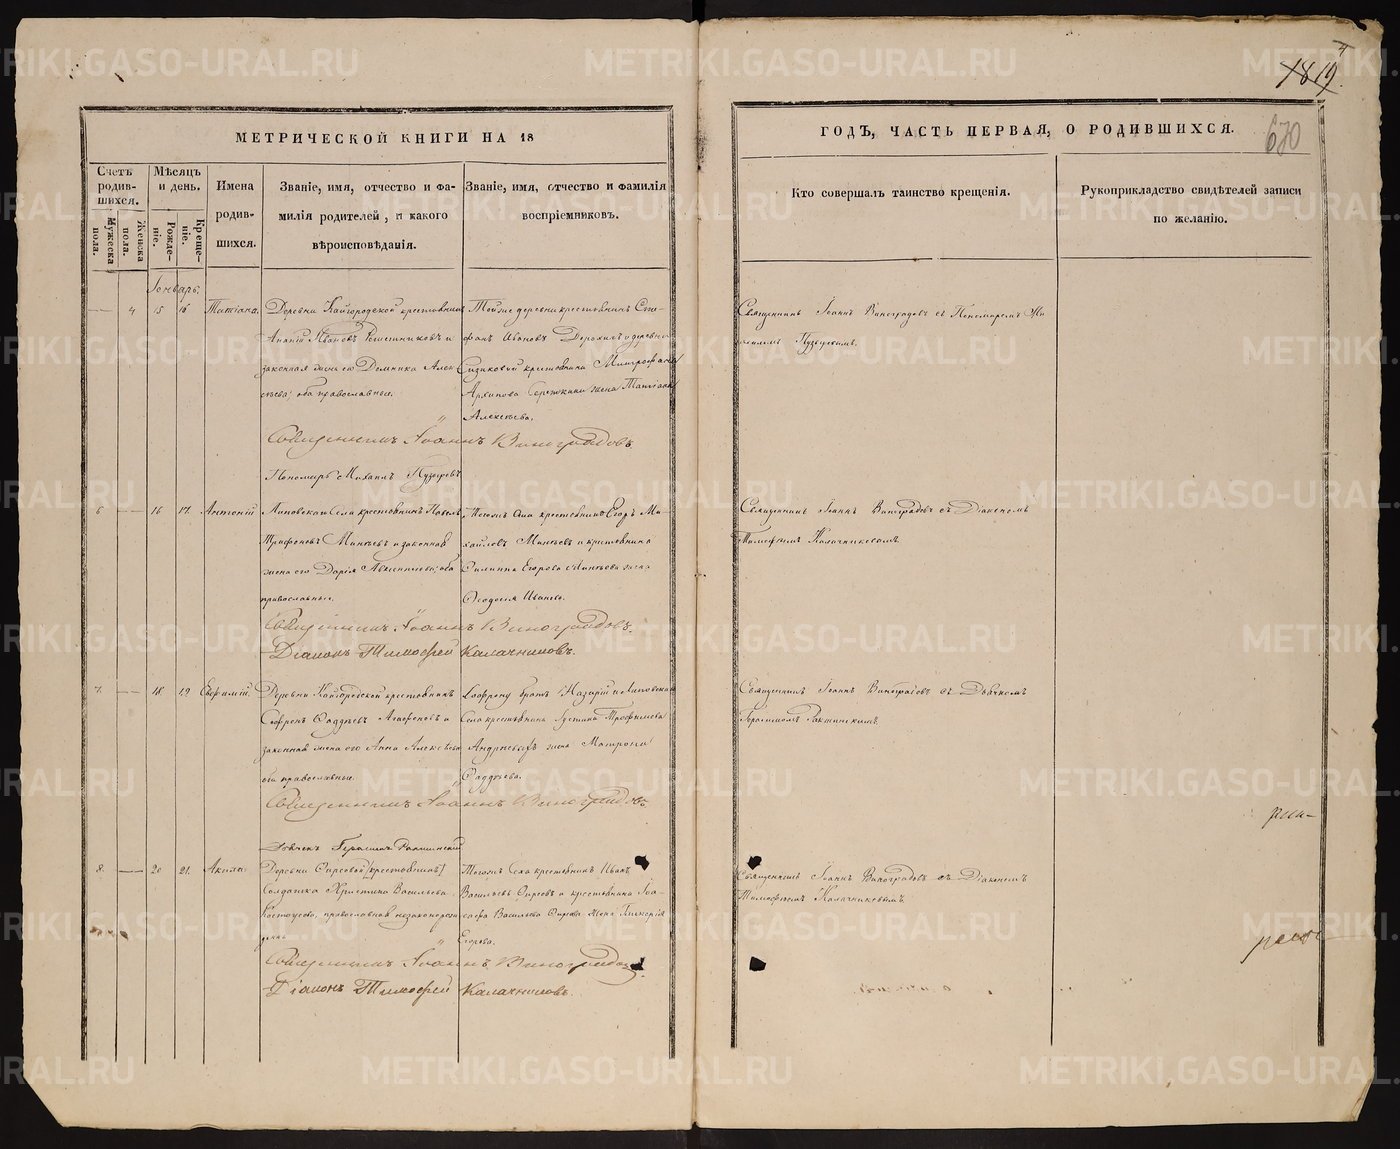 МЕТРИЧЕСКОЙ КНИГИ НА 18
Счетъ родив-шихся.
Мужеска пола.
Женска пола.
Мѣсяцъ и день.
Рожде-ніе.
Креще-ніе.
Имена родив-шихся.
Званіе, имя, отчество и фа-
милія родителей, и какого
вѣроисповѣданія.
Званіе, имя, отчество и фамилія
воспріемниковъ.
Январь.
4 15 16 Татіана.
Деревни Кайгородской крестьянинъ
Ананій Ивановъ и
законная жена его Домника Алек-
сѣева; оба православные.
Тойже деревни крестьянинъ Сте-
фанъ Ивановъ и деревни
крестьянина Митрофана
Архипова жена Татіана
Алексѣева.
Священникъ Іоаннъ Виноградовъ
Пономарь Михаилъ Пузыревъ
6 16 17 Антоній
Липовскаго Села крестьянинъ Павелъ
Трифоновъ Минѣевъ и законная
жена его Дарія оба
православные.
Тогоже Села крестьянинъ Егоръ Ми-
хайловъ Минѣевъ и крестьянина
Филиппа Егорова Минѣева жена
Ѳеодосія Иванова.
Священникъ Іоаннъ Виноградовъ.
Діаконъ Тимофей Калачниковъ.
7 18 19 Евфимій
Деревни Кайгородской крестьянинъ
Софронъ Ѳаддѣевъ Агафоновъ и
законная жена его Анна Алексѣева
оба православные.
Софрону братъ Назарій и Липовскаго
Села крестьянина Іустина Трофимова
жена Матрона
Ѳаддѣева.
Священникъ Іоаннъ Виноградовъ
Дьячекъ Герасимъ
8 20 21 Акила
Деревни
Солдатка Христина Васильева
православная незаконорож-
денъ
Тогоже Села крестьянинъ Иванъ
Васильевъ и крестьянина Іоа-
сафа Васильева жена Гликерія
Егорова.
Священникъ Іоаннъ Виноградовъ
Діаконъ Тимофей Калачниковъ.
4
1819.
670
ГОДЪ, ЧАСТЬ ПЕРВАЯ, О РОДИВШИХСЯ.
Кто совершалъ таинство крещенія.
Рукоприкладство свидѣтелей записи
по желанію.
Священникъ Іоаннъ Виноградовъ съ Пономаремъ Ми-
хаиломъ Пузыревымъ.
Священникъ Іоаннъ Виноградовъ съ Діакономъ
Тимофѣемъ Калачниковымъ.
Священникъ Іоаннъ Виноградовъ съ Дьячкомъ
Герасимомъ
Священникъ Іоаннъ Виноградовъ съ Діакономъ
Тимофѣемъ Калачниковымъ.
METRIKI.GASO-URAL.RU